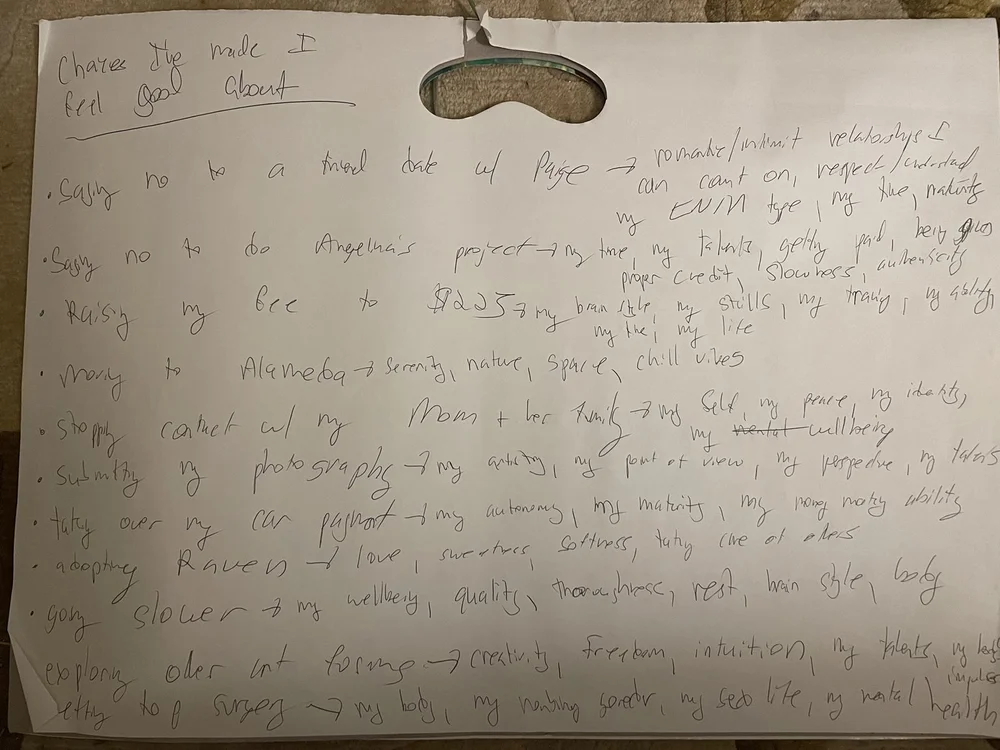 Choices I've made I
feel good about
• Saying no to a friend date w/ Paige → romantic/intimit relatioships I
can count on, respect/understad
my ENM type, my time, maturity
• Saying no to do Angelina's project → my time, my talents, getting paid, being given
proper credit, slowness, authenticity
• Raising my fee to $225 → my brain style, my skills, my traing, my ability,
my time, my life
• moving to Alameda → serenity, nature, space, chill vibes
• stopping contact w/ my Mom + her family → my self, my peace, my identity,
my mental wellbeing
• submitting my photographs → my artistry, my point of view, my perspective, my talents
• taking over my car payment → my autonomy, my maturity, my money making ability
• adopting Raven → love, sweetness, softness, taking care of others
• going slower → my wellbeing, quality, thoroughness, rest, brain style, body
exploring other art forms → creativity, freedom, intuition, my talents, my
impulses
etting top surgery → my body, my gender, my sex life, my mental health